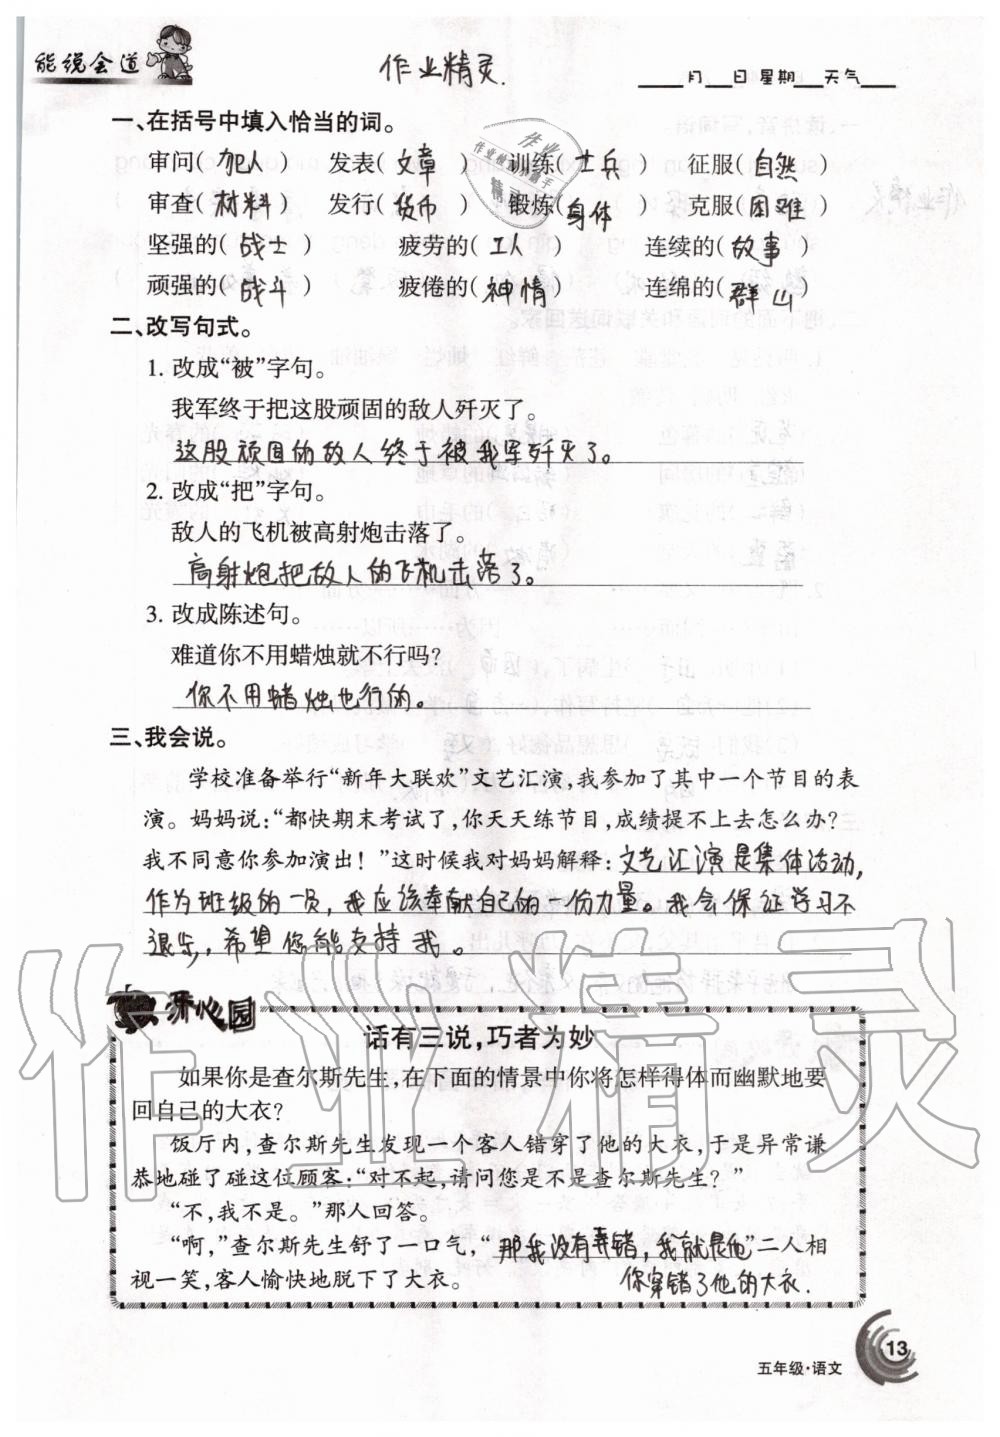 能说会道
作业精灵
____月____日星期____天气____
一、在括号中填入恰当的词。
审问(犯人) 发表(文章) 训练(士兵) 征服(自然)
审查(材料) 发行(货币) 锻炼(身体) 克服(困难)
坚强的(战士) 疲劳的(工人) 连续的(故事)
顽强的(战斗) 疲倦的(神情) 连绵的(群山)
二、改写句式。
1. 改成“被”字句。
我军终于把这股顽固的敌人歼灭了。
这股顽固的敌人终于被我军歼灭了。
2. 改成“把”字句。
敌人的飞机被高射炮击落了。
高射炮把敌人的飞机击落了。
3. 改成陈述句。
难道你不用蜡烛就不行吗?
你不用蜡烛也行的。
三、我会说。
学校准备举行“新年大联欢”文艺汇演,我参加了其中一个节目的表
演。妈妈说:“都快期末考试了,你天天练节目,成绩提不上去怎么办?
我不同意你参加演出!”这时候我对妈妈解释:文艺汇演是集体活动,
作为班级的一员,我应该奉献自己的一份力量。我会保证学习不
退步,希望你能支持我。
开心园
话有三说,巧者为妙
如果你是查尔斯先生,在下面的情景中你将怎样得体而幽默地要
回自己的大衣?
饭厅内,查尔斯先生发现一个客人错穿了他的大衣,于是异常谦
恭地碰了碰这位顾客:“对不起,请问您是不是查尔斯先生?”
“不,我不是。”那人回答。
“啊,”查尔斯先生舒了一口气,“那我没有弄错,我就是他”二人相
视一笑,客人愉快地脱下了大衣。 你穿错了他的大衣.
13
五年级·语文
作业精灵